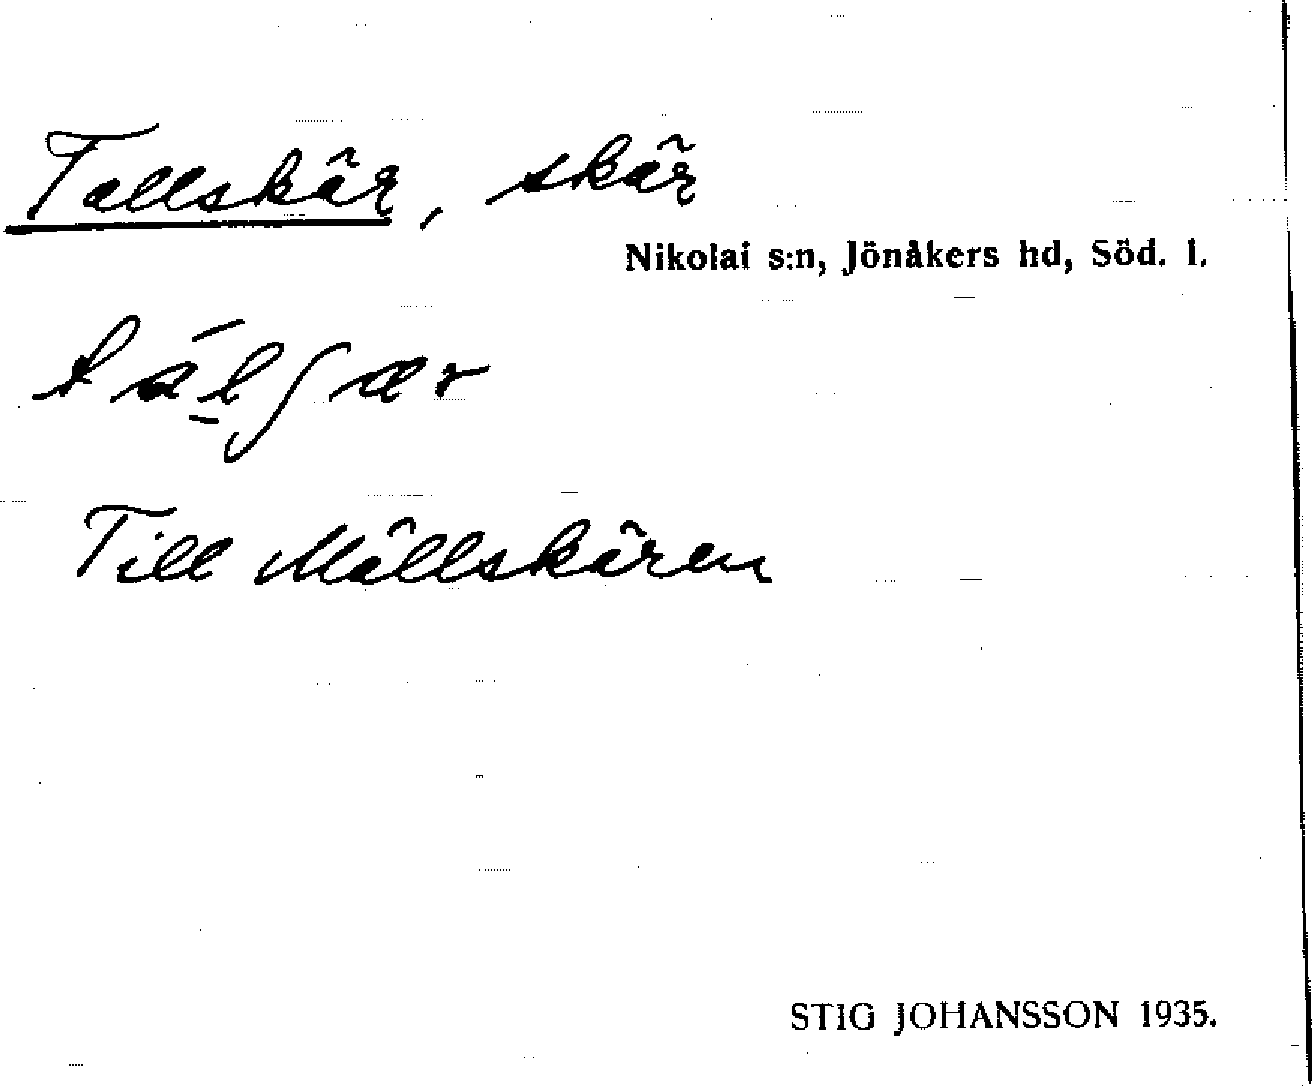 Tallskär, skär
Nikolai s:n, Jönåkers hd, Söd. l.
Till Mällskären
STIG JOHANSSON 1935.